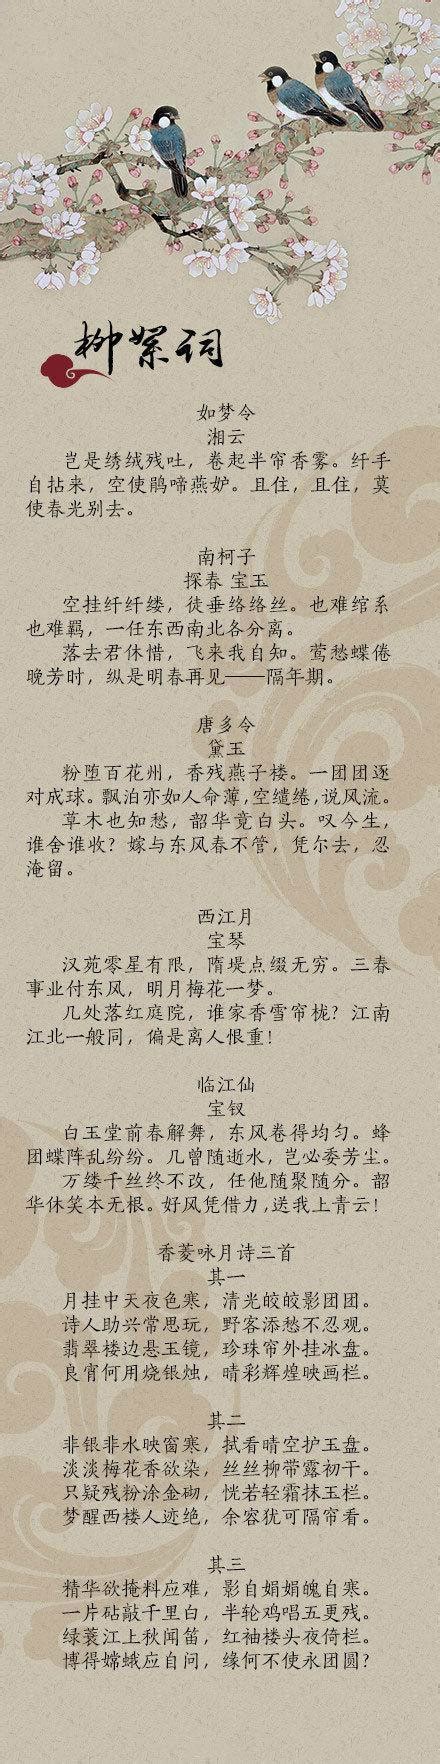 柳絮词
如梦令
湘云
岂是绣绒残吐，卷起半帘香雾。纤手
自拈来，空使鹃啼燕妒。且住，且住，莫
使春光别去。
南柯子
探春 宝玉
空挂纤纤缕，徒垂络络丝。也难绾系
也难羁，一任东西南北各分离。
落去君休惜，飞来我自知。莺愁蝶倦
晚芳时，纵是明春再见——隔年期。
唐多令
黛玉
粉堕百花州，香残燕子楼。一团团逐
对成球。飘泊亦如人命薄，空缱绻，说风流。
草木也知愁，韶华竟白头。叹今生，
谁舍谁收？嫁与东风春不管，凭尔去，忍
淹留。
西江月
宝琴
汉苑零星有限，隋堤点缀无穷。三春
事业付东风，明月梅花一梦。
几处落红庭院，谁家香雪帘栊？江南
江北一般同，偏是离人恨重！
临江仙
宝钗
白玉堂前春解舞，东风卷得均匀。蜂
团蝶阵乱纷纷。几曾随逝水，岂必委芳尘。
万缕千丝终不改，任他随聚随分。韶
华休笑本无根。好风凭借力，送我上青云！
香菱咏月诗三首
其一
月挂中天夜色寒，清光皎皎影团团。
诗人助兴常思玩，野客添愁不忍观。
翡翠楼边悬玉镜，珍珠帘外挂冰盘。
良宵何用烧银烛，晴彩辉煌映画栏。
其二
非银非水映窗寒，拭看晴空护玉盘。
淡淡梅花香欲染，丝丝柳带露初干。
只疑残粉涂金砌，恍若轻霜抹玉栏。
梦醒西楼人迹绝，余容犹可隔帘看。
其三
精华欲掩料应难，影自娟娟魄自寒。
一片砧敲千里白，半轮鸡唱五更残。
绿蓑江上秋闻笛，红袖楼头夜倚栏。
博得嫦娥应自问，缘何不使永团圆？